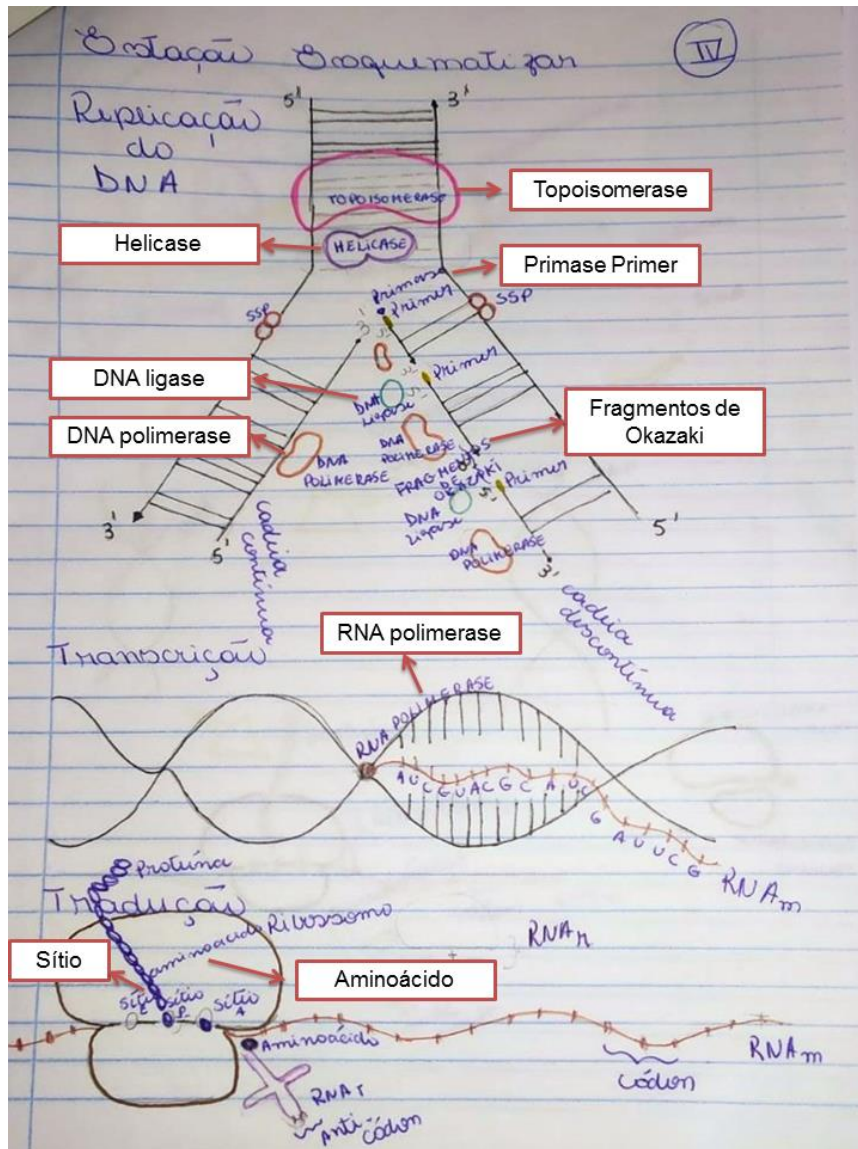 Estação Esquematizar
IV
Replicação
do
DNA
5'
3'
TOPOISOMERASE
Topoisomerase
Helicase
HELICASE
Primase Primer
Primase
Primer
SSP
SSP
3'
5'
Primer
3'
5'
DNA ligase
DNA
Ligase
Fragmentos de
Okazaki
DNA polimerase
DNA
POLIMERASE
DNA
POLIMERASE
FRAGMENTOS
DE
OKAZAKI
5'
Primer
DNA
Ligase
3'
5'
5'
DNA
POLIMERASE
3'
cadeia
contínua
cadeia
discontínua
RNA polimerase
Transcrição
RNA POLIMERASE
A U C G U A C G C A U C G A U U C G
RNAm
Proteína
Tradução
Ribossomo
aminoácido
Sítio
Aminoácido
Sítio E
Sítio P
Sítio A
Aminoácido
RNAm
códon
RNAT
Anti-códon